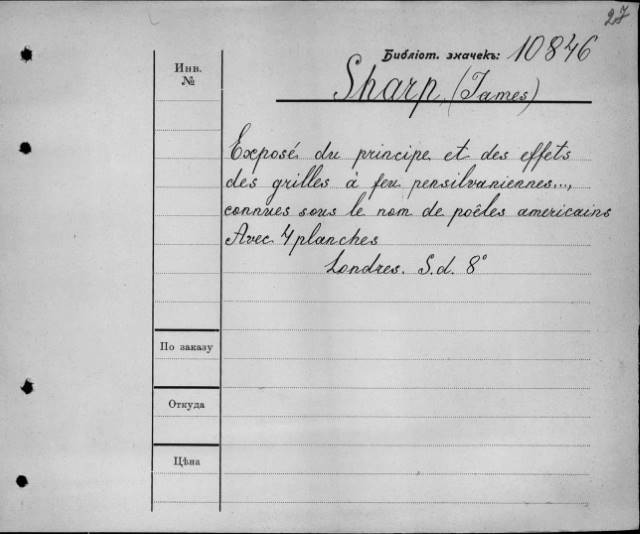 27
Библіот. значекъ: 10846
Инв.
№
Sharp, (James)
Exposé du principe et des effets
des grilles à feu pensilvaniennes...,
connues sous le nom de poêles americains
Avec 4 planches
Londres. S.d. 8°
По заказу
Откуда
Цѣна